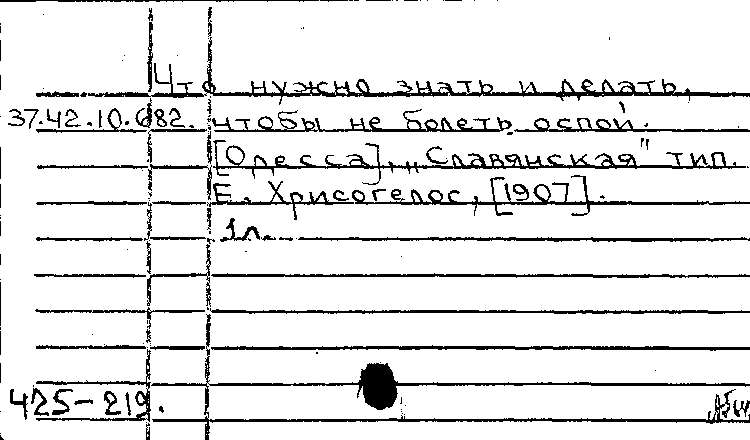 Что нужно знать и делать,
37.42.10.682. чтобы не болеть оспой.
[Одесса], „Славянская" тип.
Е. Хрисогелос, [1907].
1л.
425-219.